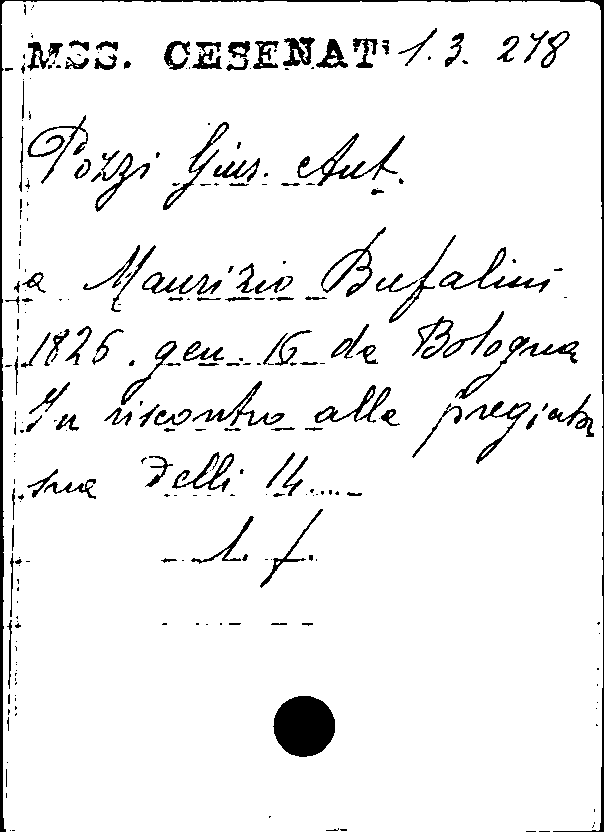 MSS. CESENATI 1.3. 278
Pozzi Gius. Ant.
a Maurizio Bufalini
1826. gen. 16 da Bologna
In riscontro alla pregiata
sua delli 14....
1. f.